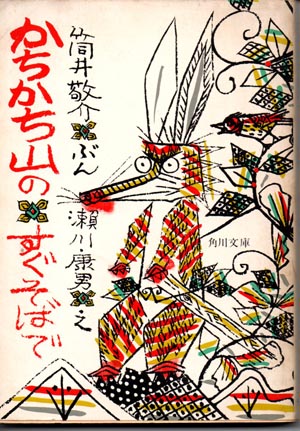 かちかち山のすぐそばで
筒井敬介ぶん
瀬川・康男え
角川文庫